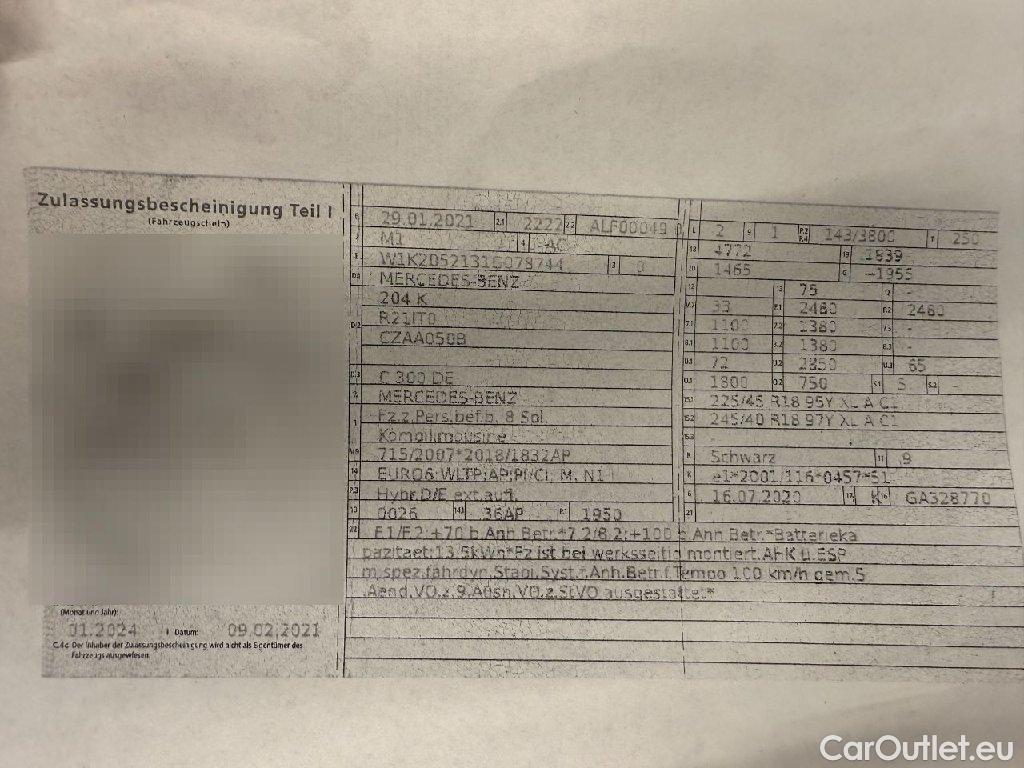 Zulassungsbescheinigung Teil I
(Fahrzeugschein)
B 29.01.2021 2.1 2222 2.2 ALF00049
J M1 4 AC
E 3
D.1 MERCEDES-BENZ
204 K
D.2 R21IT0
CZAA050B
D.3 C 300 DE
2 MERCEDES-BENZ
5 Fz.z.Pers.bef.b. 8 Spl.
Kombilimousine
V.9 715/2007*2018/1832AP
14 EURO6;WLTP;AP;PI/CI; M, N1
P.3 Hybr.D/E ext.aufl.
10 0026 14.1 36AP P.1 1950
L 2 9 1 P.2 P.4 143/3800 T 250
18 4772 19 1839
20 1465 G -1955
12 - 13 75 Q -
V.7 33 F.1 2480 F.2 2480
7.1 1100 7.2 1380 7.3 -
8.1 1100 8.2 1380 8.3 -
U.1 72 U.2 2850 U.3 65
O.1 1800 O.2 750 S.1 5 S.2 -
15.1 225/45 R18 95Y XL A C1
15.2 245/40 R18 97Y XL A C1
15.3 -
R Schwarz 11 9
K e1*2001/116*0457*51
6 16.07.2020 17 K 16 GA328770
21
22 F.1/F.2:+70 b.Anh.Betr.*7.2/8.2:+100 b.Anh.Betr.*Batterieka
pazitaet:13,5kWh*Fz ist bei werksseitig montiert.AHK u.ESP
m.spez.fahrdyn.Stabi.Syst.*.Anh.Betr.f.Tempo 100 km/h gem.5
.Aend.VO.z.9.Ausn.VO.z.StVO ausgestattet*
(Monat und Jahr):
01.2024 I Datum: 09.02.2021
C.4c Der Inhaber der Zulassungsbescheinigung wird nicht als Eigentümer des
Fahrzeugs ausgewiesen.
CarOutlet.eu